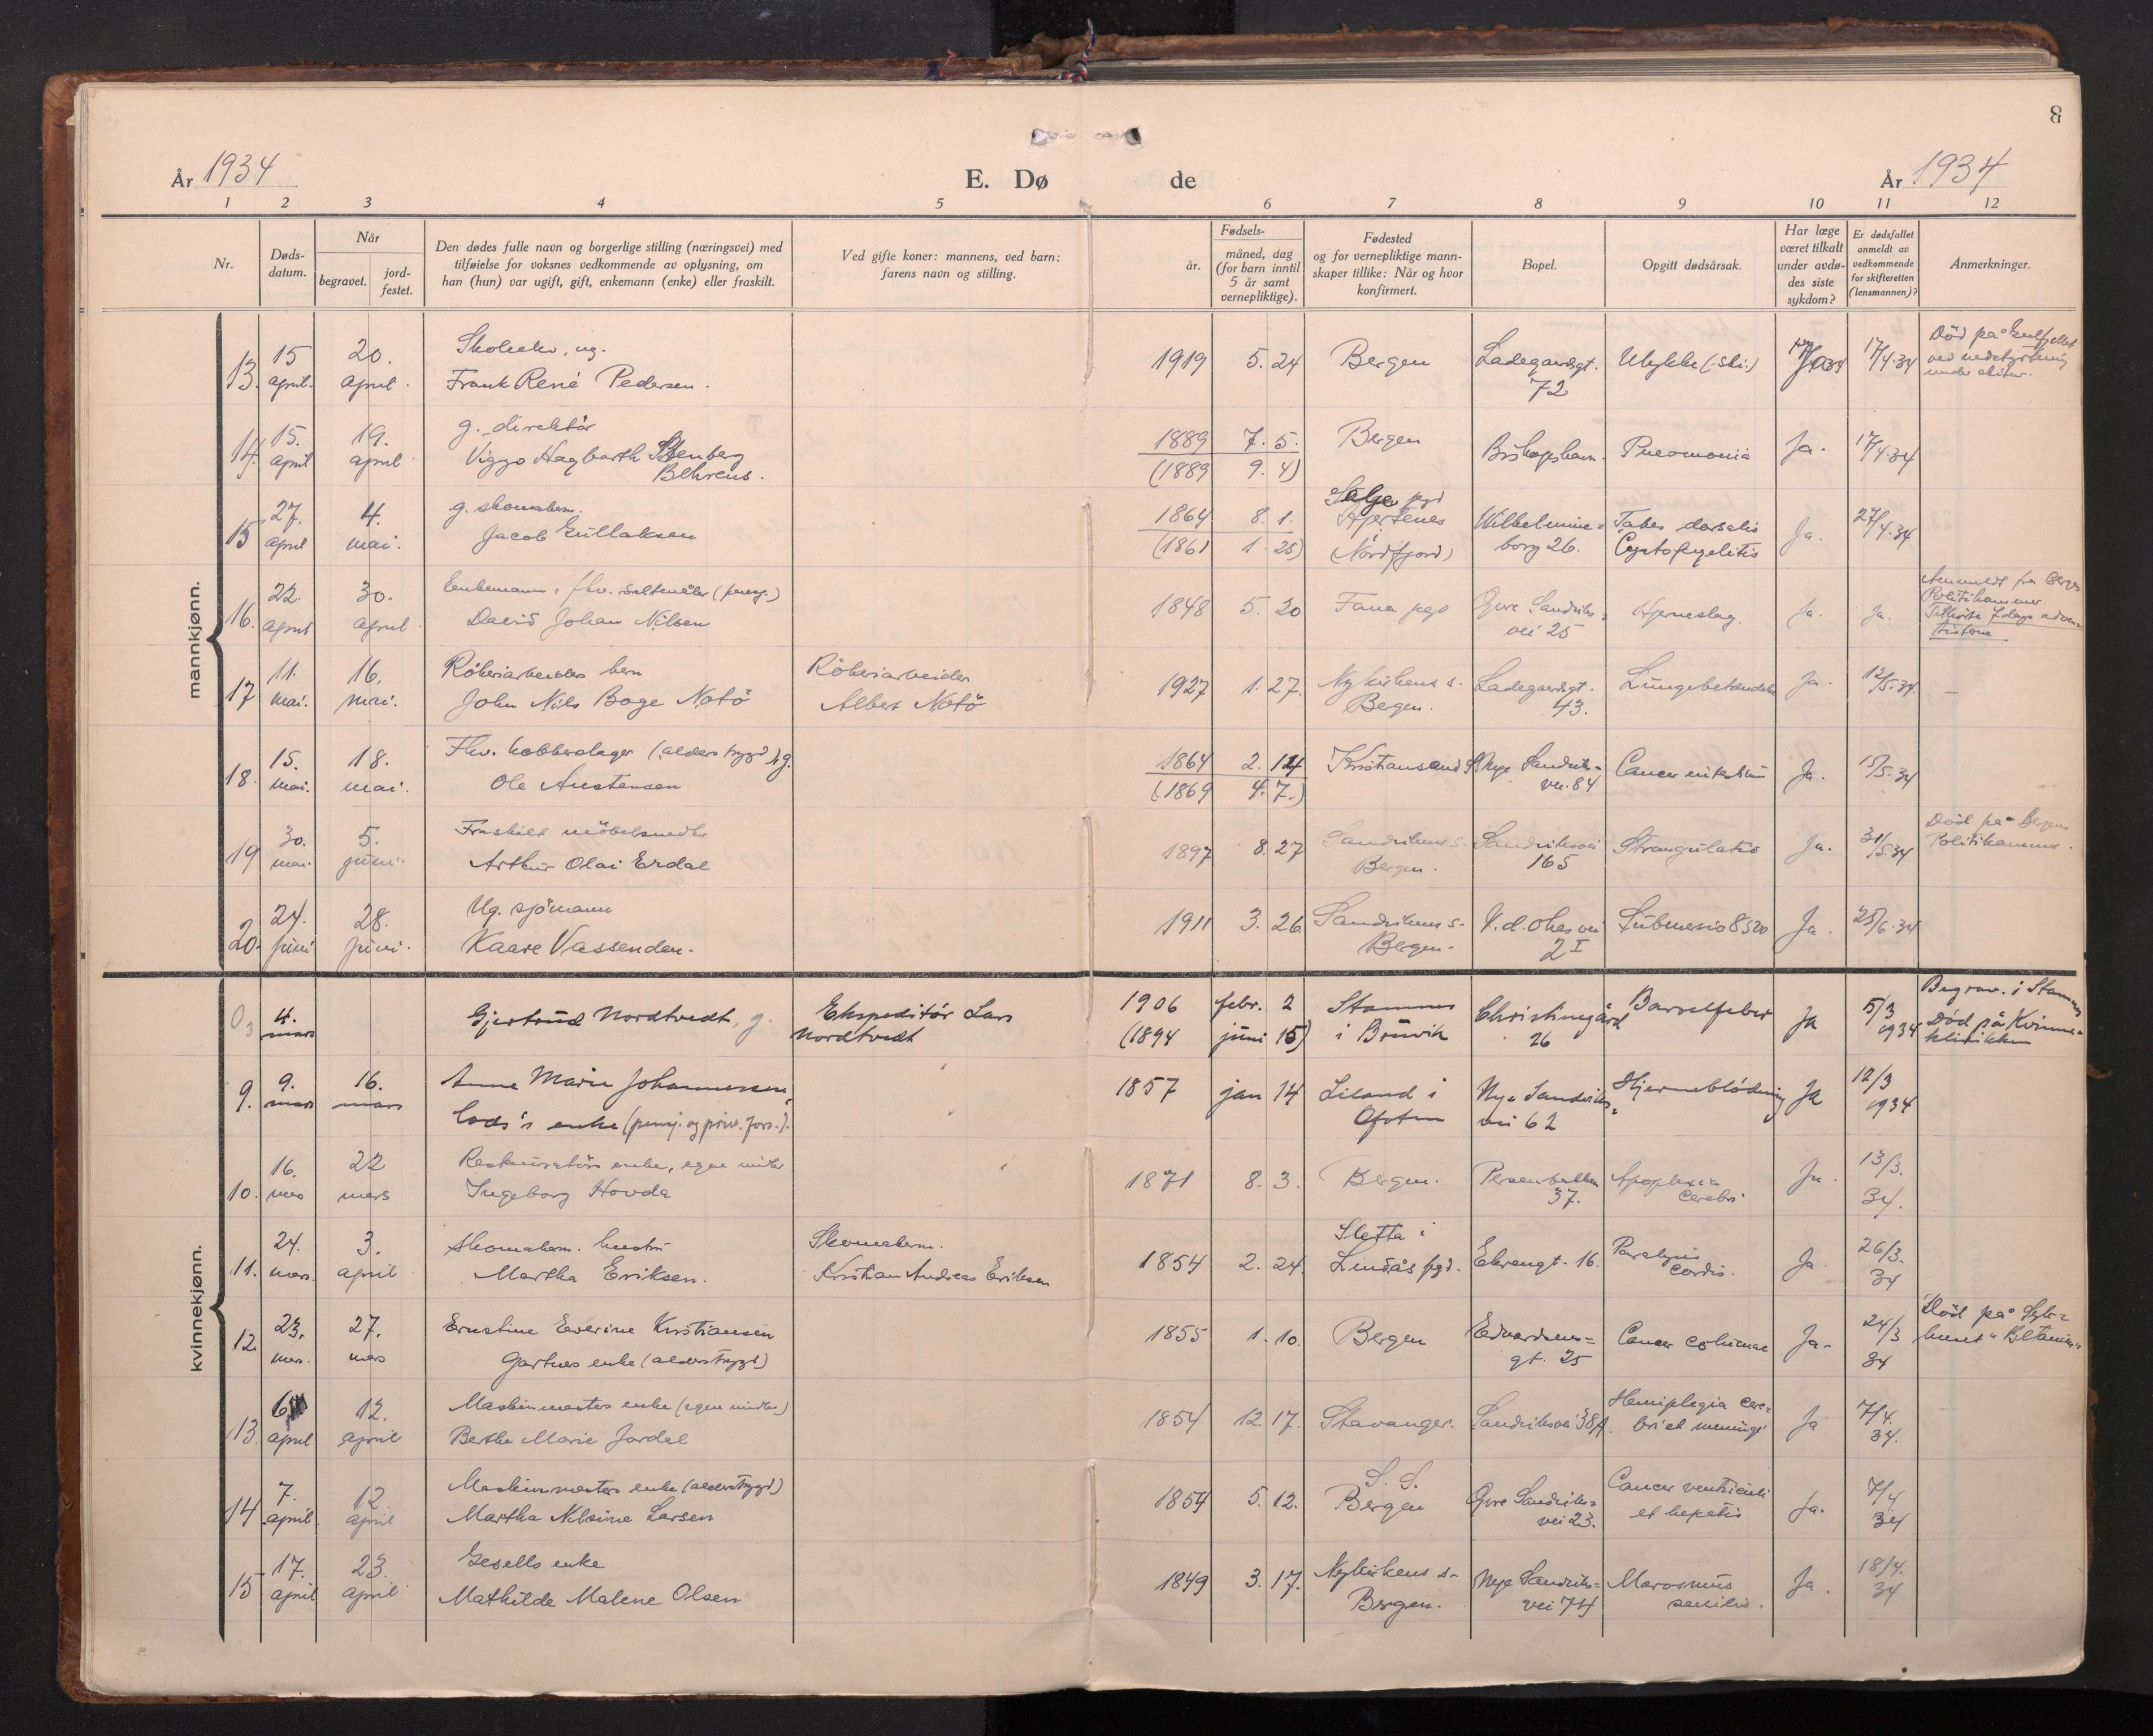 8
År 1934
E. Dø
de
År 1934
1 2 3 4 5 6 7 8 9 10 11 12
Nr.
Døds-
datum.
Når
begravet.
jord-
festet.
Den dødes fulle navn og borgerlige stilling (næringsvei) med
tilføielse for voksnes vedkommende av oplysning, om
han (hun) var ugift, gift, enkemann (enke) eller fraskilt.
Ved gifte koner: mannens, ved barn:
farens navn og stilling.
år.
Fødsels-
måned, dag
(for barn inntil
5 år samt
vernepliktige).
Fødested
og for vernepliktige mann-
skaper tillike: Når og hvor
konfirmert.
Bopel.
Opgitt dødsårsak.
Har læge
været tilkalt
under avdø-
des siste
sykdom?
Er dødsfallet
anmeldt av
vedkommende
for skifteretten
(lensmannen)?
Anmerkninger.
mannkjønn.
13. 15 april. 20. april.
Skoleelev, ug.
Frank René Pedersen.
1919 5. 24 Bergen
Ladegaardsgt.
72
Ulykke (: ski:)
17/4.34
Död på
ved nedstyrtning
under skitur.
14. 15. april 19. april
g. direktör
Viggo Hagbarth Stenberg
Behrens.
1889 7. 5.
(1889 9. 4)
Bergen
Biskopshavn. Pneomonia Ja. 17/4.34
15 27. april 4. mai.
g. skomakerm.
Jacob Gullaksen
1864 8. 1.
(1861 1. 25)
Selje pgd
Hjertenes
(Nordfjord)
Wilhelmine=
borg 26.
Tabes dorsalis
Cystopyelitis
Ja. 27/4.34
16. 22. april 30. april
Enkemann, fhv. (pensj.)
David Johan Nilsen
1848 5. 20 Fana pgd
Övre Sandviks=
vei 25
Hjerneslag. Ja. Ja.
Anmeldt fra Bergens
Politikammer
Tilhörte 7dags adven=
tistene
17 11. mai. 16. mai.
Rökeriarbeiders barn
John Nils Boge Notö
Rökeriarbeider
Albert Notö
1927 1. 27.
Nykirkens s.
Bergen.
Ladegaardsgt.
43.
Lungebetendelse Ja. 12/5.34 —
18. 15. mai. 18. mai.
Fhv. kobberslager (alderstrygd) g.
Ole Austensen
1864 2. 14
(1869 4. 7.)
Kristiansand S
Nye Sandviks=
vei. 84
Cancer Ja. 15/5.34
19 30. mai 5. juni.
Fraskilt möbelsnedker
Arthur Olai Erdal
1897 8. 27
Sandvikens s.
Bergen.
Sandviksvei
165
Strangulatio Ja. 31/5.34
Död på Bergens
Politikammer.
20. 24. juni 28. juni.
Ug. sjömann
Kaare Vassenden.
1911 3. 26
Sandvikens s.
Bergen.
V. d. Ohes vei
2 I
Submersio 8520 Ja. 25/6.34
kvinnekjønn.
03 4. mars
Gjertrud Nordtvedt, g.
Ekspeditör Lars
Nordtvedt
1906 febr. 2
(1894 juni 15)
Stamnes
i Bruvik
Christinegård
26
Barselfeber Ja 5/3 1934
Begrav. i Stamnes
Död på Kvinne=
klinikken
9. 9. mars 16. mars
Anne Marie Johannessen,
lods's enke (pensj. og priv. fors.).
1857 jan 14
Liland i
Ofoten
Nye Sandviks=
vei 62
Hjerneblödning Ja 12/3 1934
10. 16. mars 22 mars
Restauratörs enke, egne midler
Ingeborg Hovda
1871 8. 3. Bergen.
Persenbakken
37.
Apoplexia
cerebri
Ja. 13/3. 34.
11. 24. mars. 3. april
Skomakerm. hustru
Martha Eriksen.
Skomakerm.
Kristian Andreas Eriksen
1854 2. 24.
Sletta i
Lindås pgd.
Ekrengt. 16.
Paralysis
cordis.
Ja 26/3. 34
12 23. mars. 27. mars
Ernstine Everine Kristiansen
Gartners enke (alderstrygd)
1855 1. 10. Bergen
Edvardsens=
gt. 25
Cancer columnae Ja- 24/3 34
Död på Syke=
huset "Betanien"
13. 6. april 12. april
Maskinmesters enke (egne midler)
Berthe Marie Jordal
1854 12. 17. Stavanger. Sandviksvei 38A.
Hemiplegia cere=
bri et
Ja 7/4. 34.
14 7. april. 12 april
Maskinmesters enke (alderstrygd)
Martha Nilsine Larsen
1854 5. 12.
S. S.
Bergen
Övre Sandviks=
vei 23.
Cancer ventriculi
et hepatis
Ja. 7/4 34
15 17. april 23. april
Gesells enke
Mathilde Malene Olsen
1849 3. 17.
Nykirkens s.
Bergen.
Nye Sandviks=
vei 74
Marasmus
senilis.
Ja. 18/4. 34